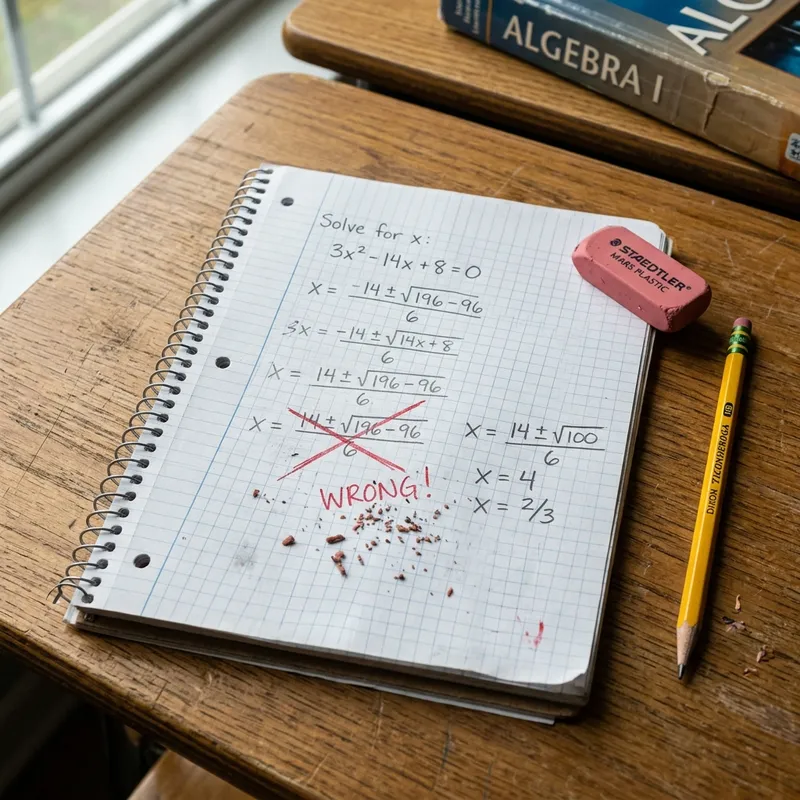 ALGEBRA I
Solve for x:
3x² - 14x + 8 = 0
x = (-14 ± √(196 - 96))/6
3x = (-14 ± √(14x + 8))/6
x = (14 ± √(196 - 96))/6
x = (14 ± √(196 - 96))/6
WRONG!
x = (14 ± √100)/6
x = 4
x = 2/3
STAEDTLER®
MARS PLASTIC
DIXON TICONDEROGA